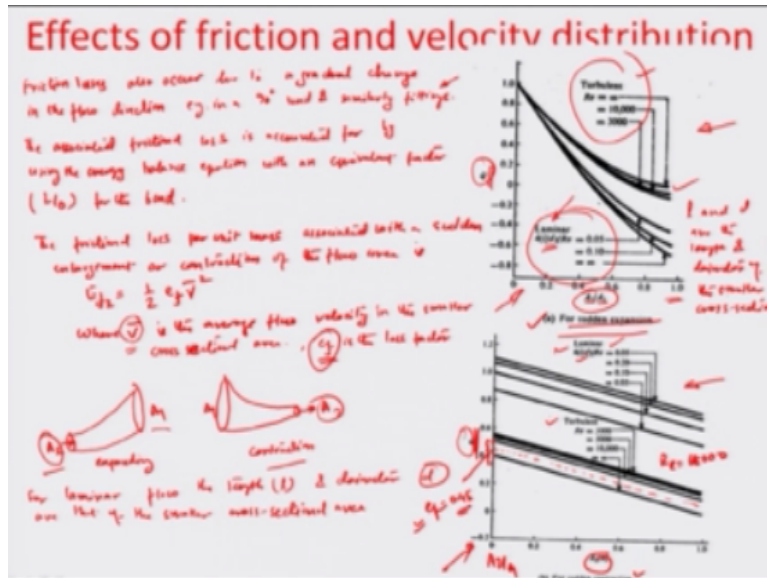 Effects of friction and velocity distribution
friction losses also occur due to a gradual change
in the flow direction e.g. in a 90° bend & similarly fittings.
The associated frictional loss is accounted for by
using the energy balance equation with an equivalent factor
(L/D) for the bend.
The frictional loss per unit mass associated with a sudden
enlargement or contraction of the flow area is
= 1/2 ef v̄²
where v̄ is the average flow velocity in the smaller
cross sectional area. ef is the loss factor
A2 A1 A1 A2
expanding contraction
For laminar flow the length (l) & diameter d
are that of the smaller cross-sectional area
1.0
0.8
0.6
0.4
0.2
0
-0.2
-0.4
-0.6
-0.8
Turbulent
= 10,000
= 3000
Laminar
= 0.05
= 0.10
= ∞
0 0.2 0.4 0.6 0.8 1.0
(a) For sudden expansion
l and d
are the
length &
diameter of
the smaller
cross-section
1.2
1.0
0.8
0.6
0.4
Laminar
Turbulent
= 10,000
= ∞
Re = 10000
ef = 0.45
0 0.2 0.4 0.6 0.8 1.0
A2/A1